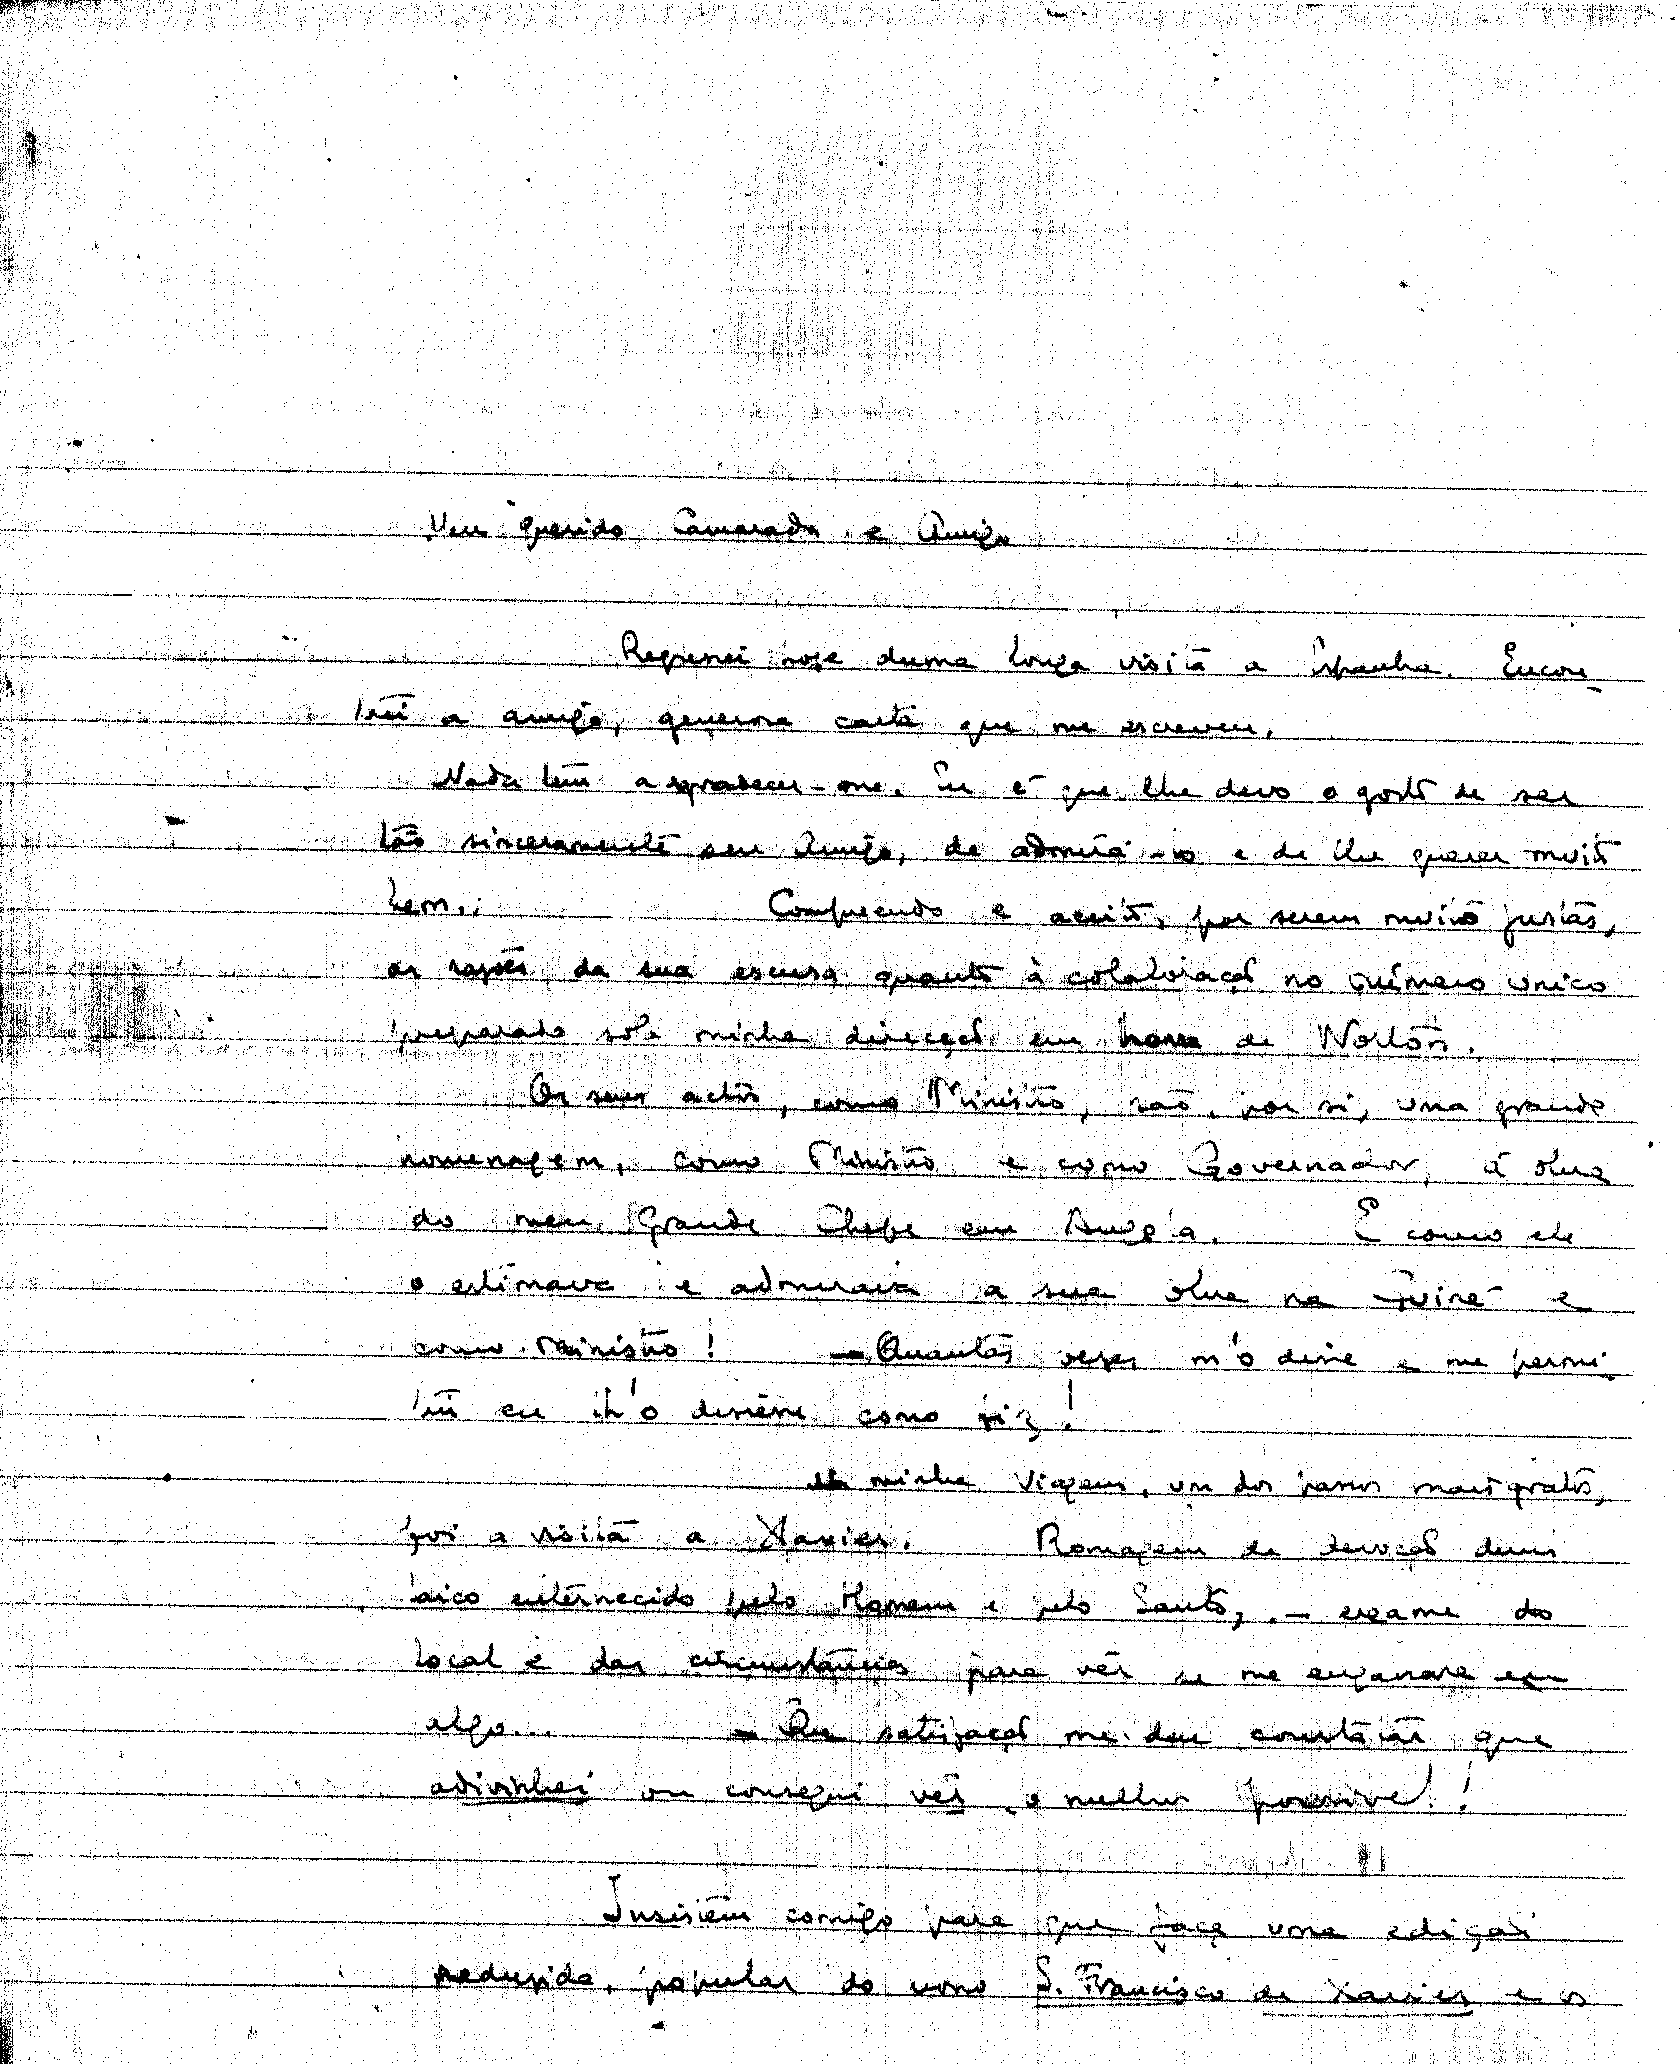 Meu querido Camarada e Amigo
Regressei hoje duma longa visita a Espanha. Encon-
trei a amiga, generosa carta que me escreveu.
Nada tem a agradecer-me. Eu é que lhe devo o gosto de ser
tão sinceramente seu Amigo, de admirá-lo e de lhe querer muito
bem.. Compreendo e aceito, por serem muito justas,
as razões da sua escusa quanto à colaboração no número unico
preparado sob minha direcção em honra de Norton.
Os seus actos, como Ministro, são, por si, uma grande
homenagem, como Ministro e como Governador, á obra
do meu Grande Chefe em Angola. E como ele
o estimava e admirava a sua obra na Guiné e
como Ministro! — Quantas vezes m'o disse e me permi-
tiu eu lh'o dissesse como fiz!
Na minha viagem, um dos passos mais gratos,
foi a visita a Xavier. Romagem de devoção dum
laico enternecido pelo Homem e pelo Santo, — exame do
local e das circunstâncias para vêr se me enganara em
algo... — Que satisfação me deu constatar que
adivinhei ou consegui vêr o melhor possivel!
Insistem comigo para que faça uma edição
reduzida, popular do S. Francisco de Xavier e os